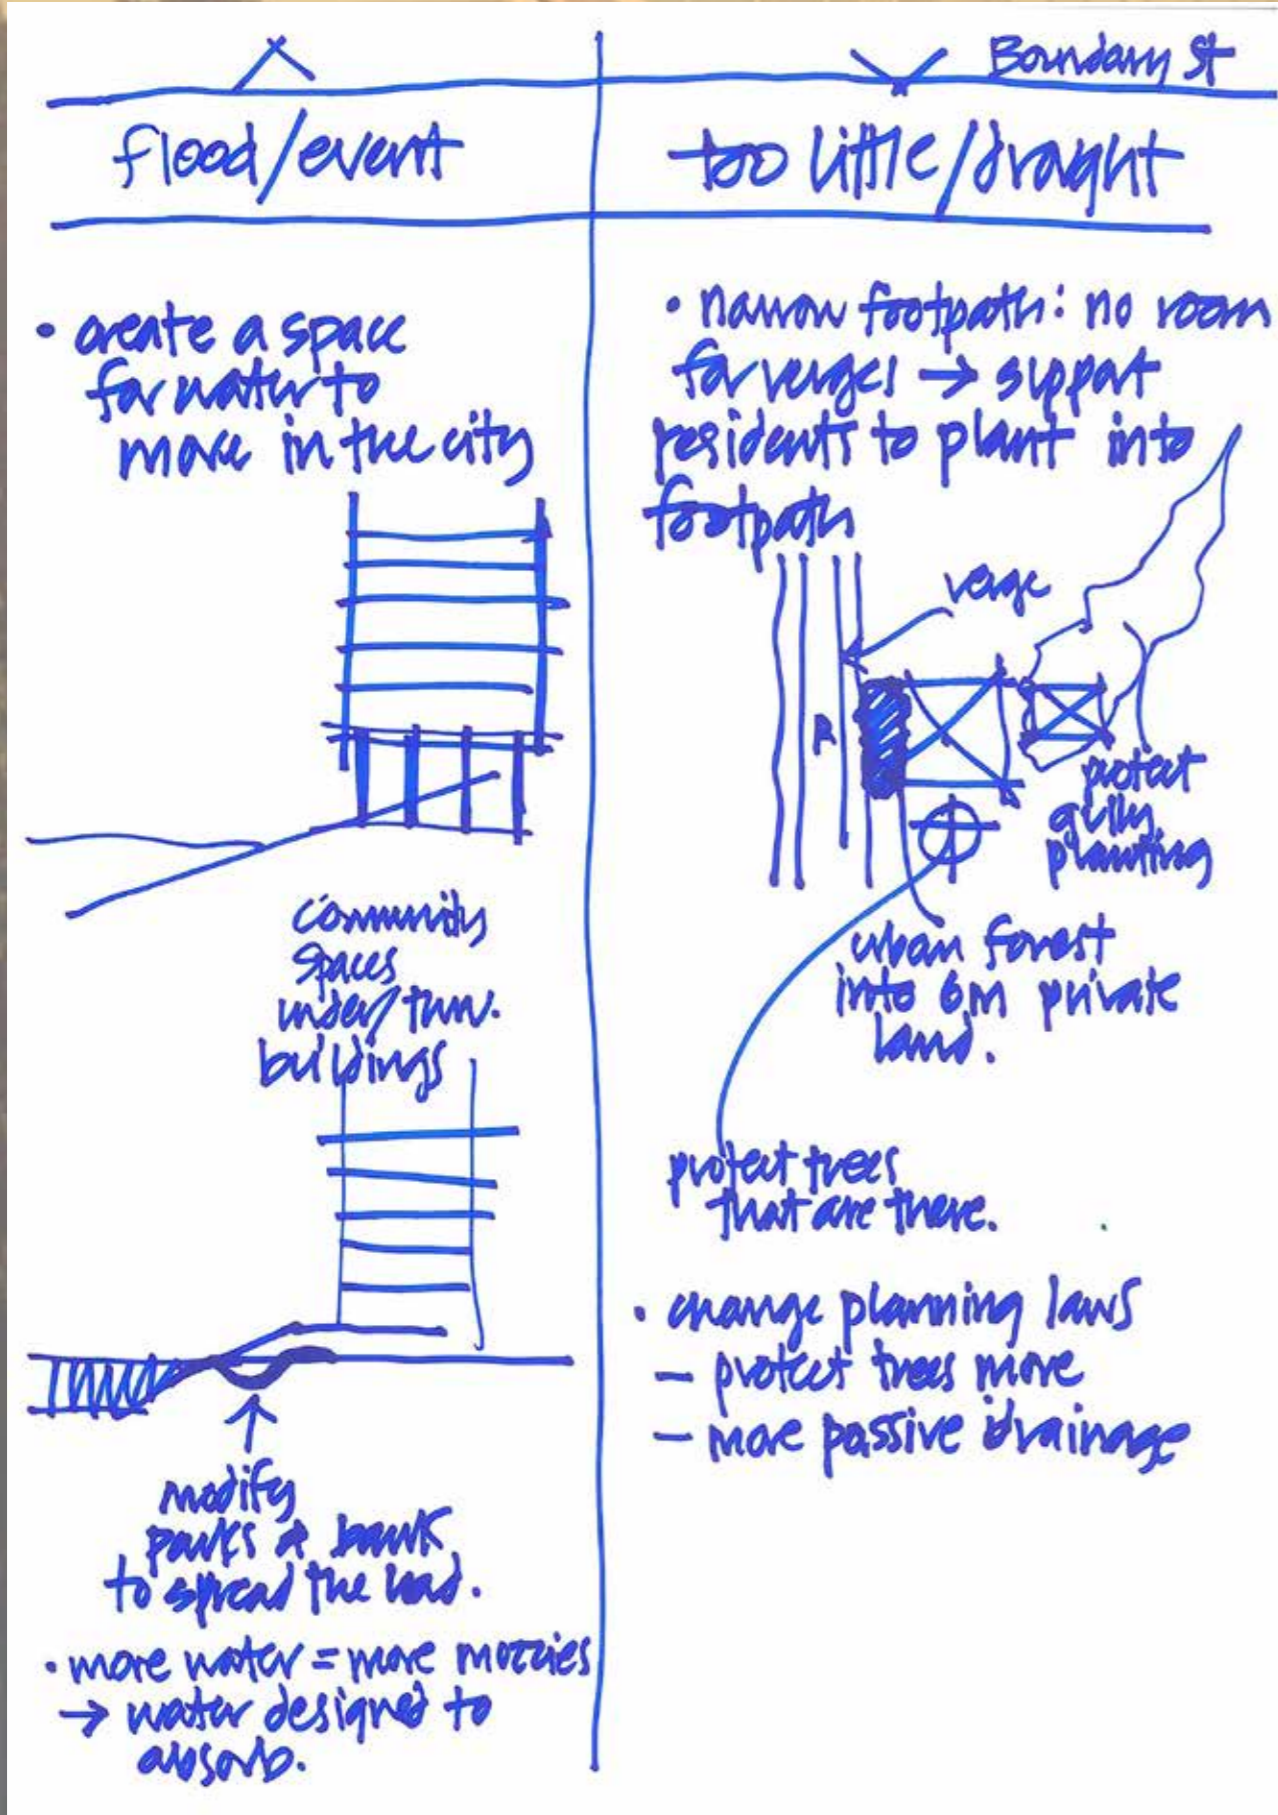 Boundary St
flood/event
too little/draught
• create a space
for water to
move in the city
community
spaces
under/thru.
buildings
modify
parks & bank
to spread the load.
• more water = more mozzies
→ water designed to
absorb.
• narrow footpath: no room
for verges → support
residents to plant into
footpath
verge
R
protect
gully
planting
urban forest
into 6m private
land.
protect trees
that are there.
• change planning laws
– protect trees more
– more passive drainage